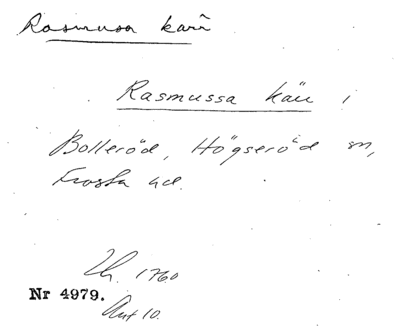 Rasmusa kärr
Rasmussa kärr i
Bolleröd, Högseröd sn,
Frosta hd.
Lh. 1760
Nr 4979.
Akt 10.